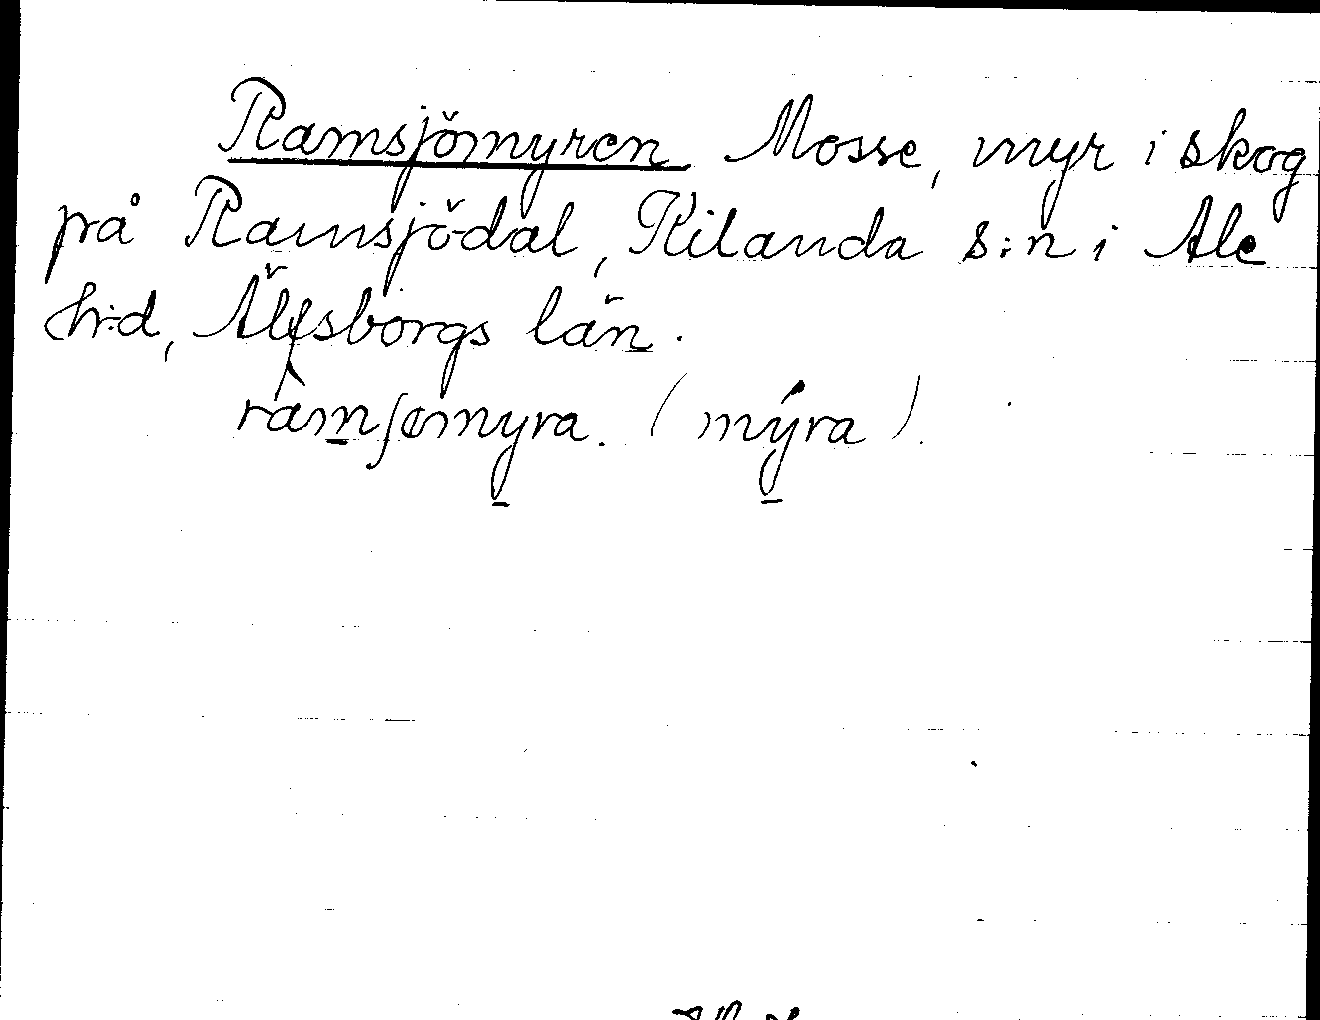 Ramsjömyren Mosse, myr i skog
på Ramsjödal, Kilanda s:n i Ale
hrd, Älfsborgs län.
ràmʃemyra. (mýra).